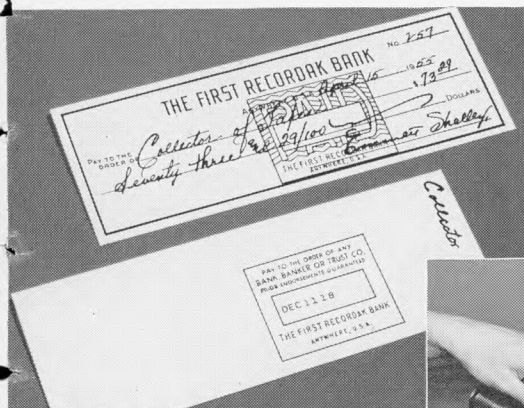 No 257
THE FIRST RECORDAK BANK
April 15 1955
PAY TO THE ORDER OF Collector of $ 73 29
Seventy three 29/100 DOLLARS
THE FIRST
ANYWHERE, U.S.A.
Shalley
Collector
PAY TO THE ORDER OF ANY
BANK BANKER OR TRUST CO.
PRIOR ENDORSEMENTS GUARANTEED
DEC 11 18
THE FIRST RECORDAK BANK
ANYWHERE, U.S.A.